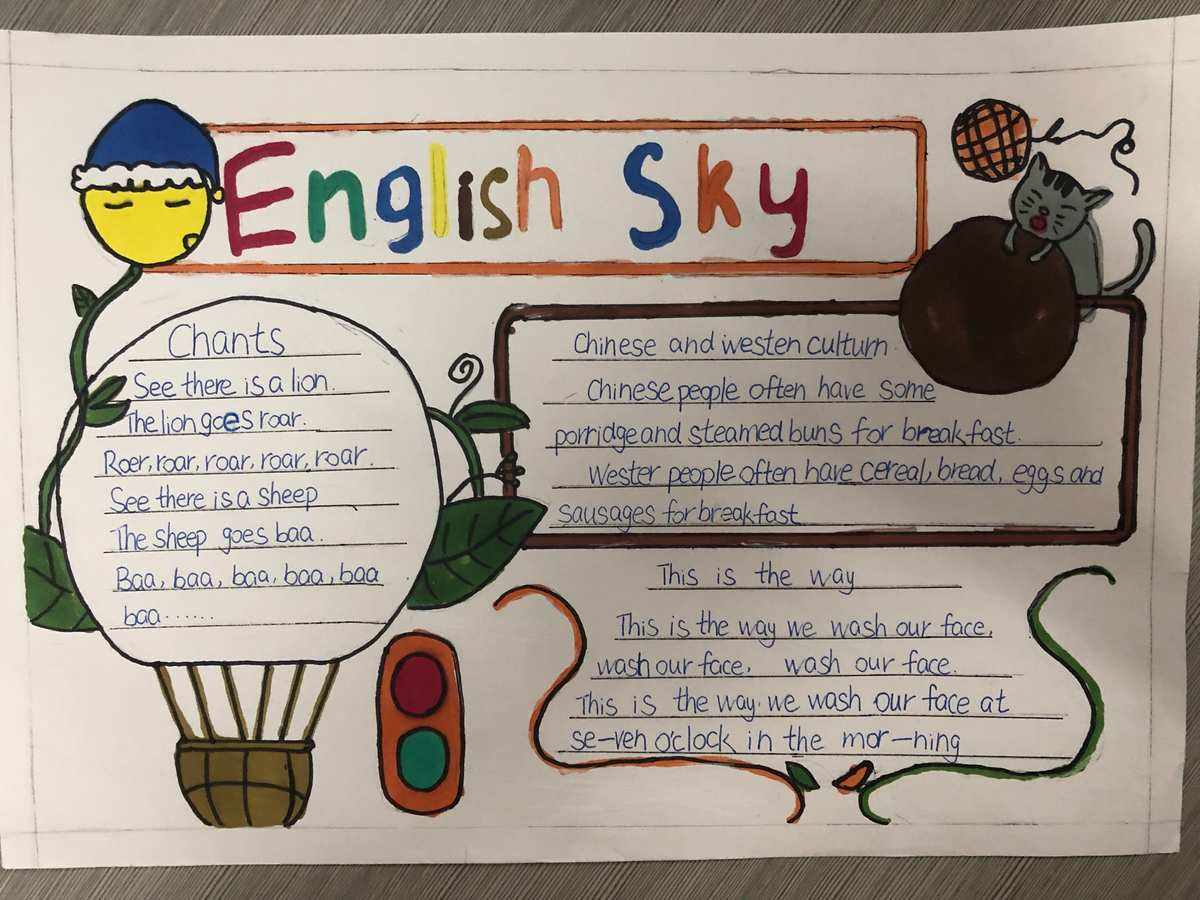 English Sky
Chants
See there is a lion.
The lion goes roar.
Roer, roar, roar, roar, roar.
See there is a sheep
The sheep goes baa.
Baa, baa, baa, baa, baa
baa......
Chinese and westen culturn.
Chinese people often have some
porridge and steamed buns for breakfast.
Wester people often have cereal, bread, eggs and
sausages for breakfast
This is the way
This is the way we wash our face,
wash our face, wash our face.
This is the way we wash our face at
se-ven o'clock in the mor-ning